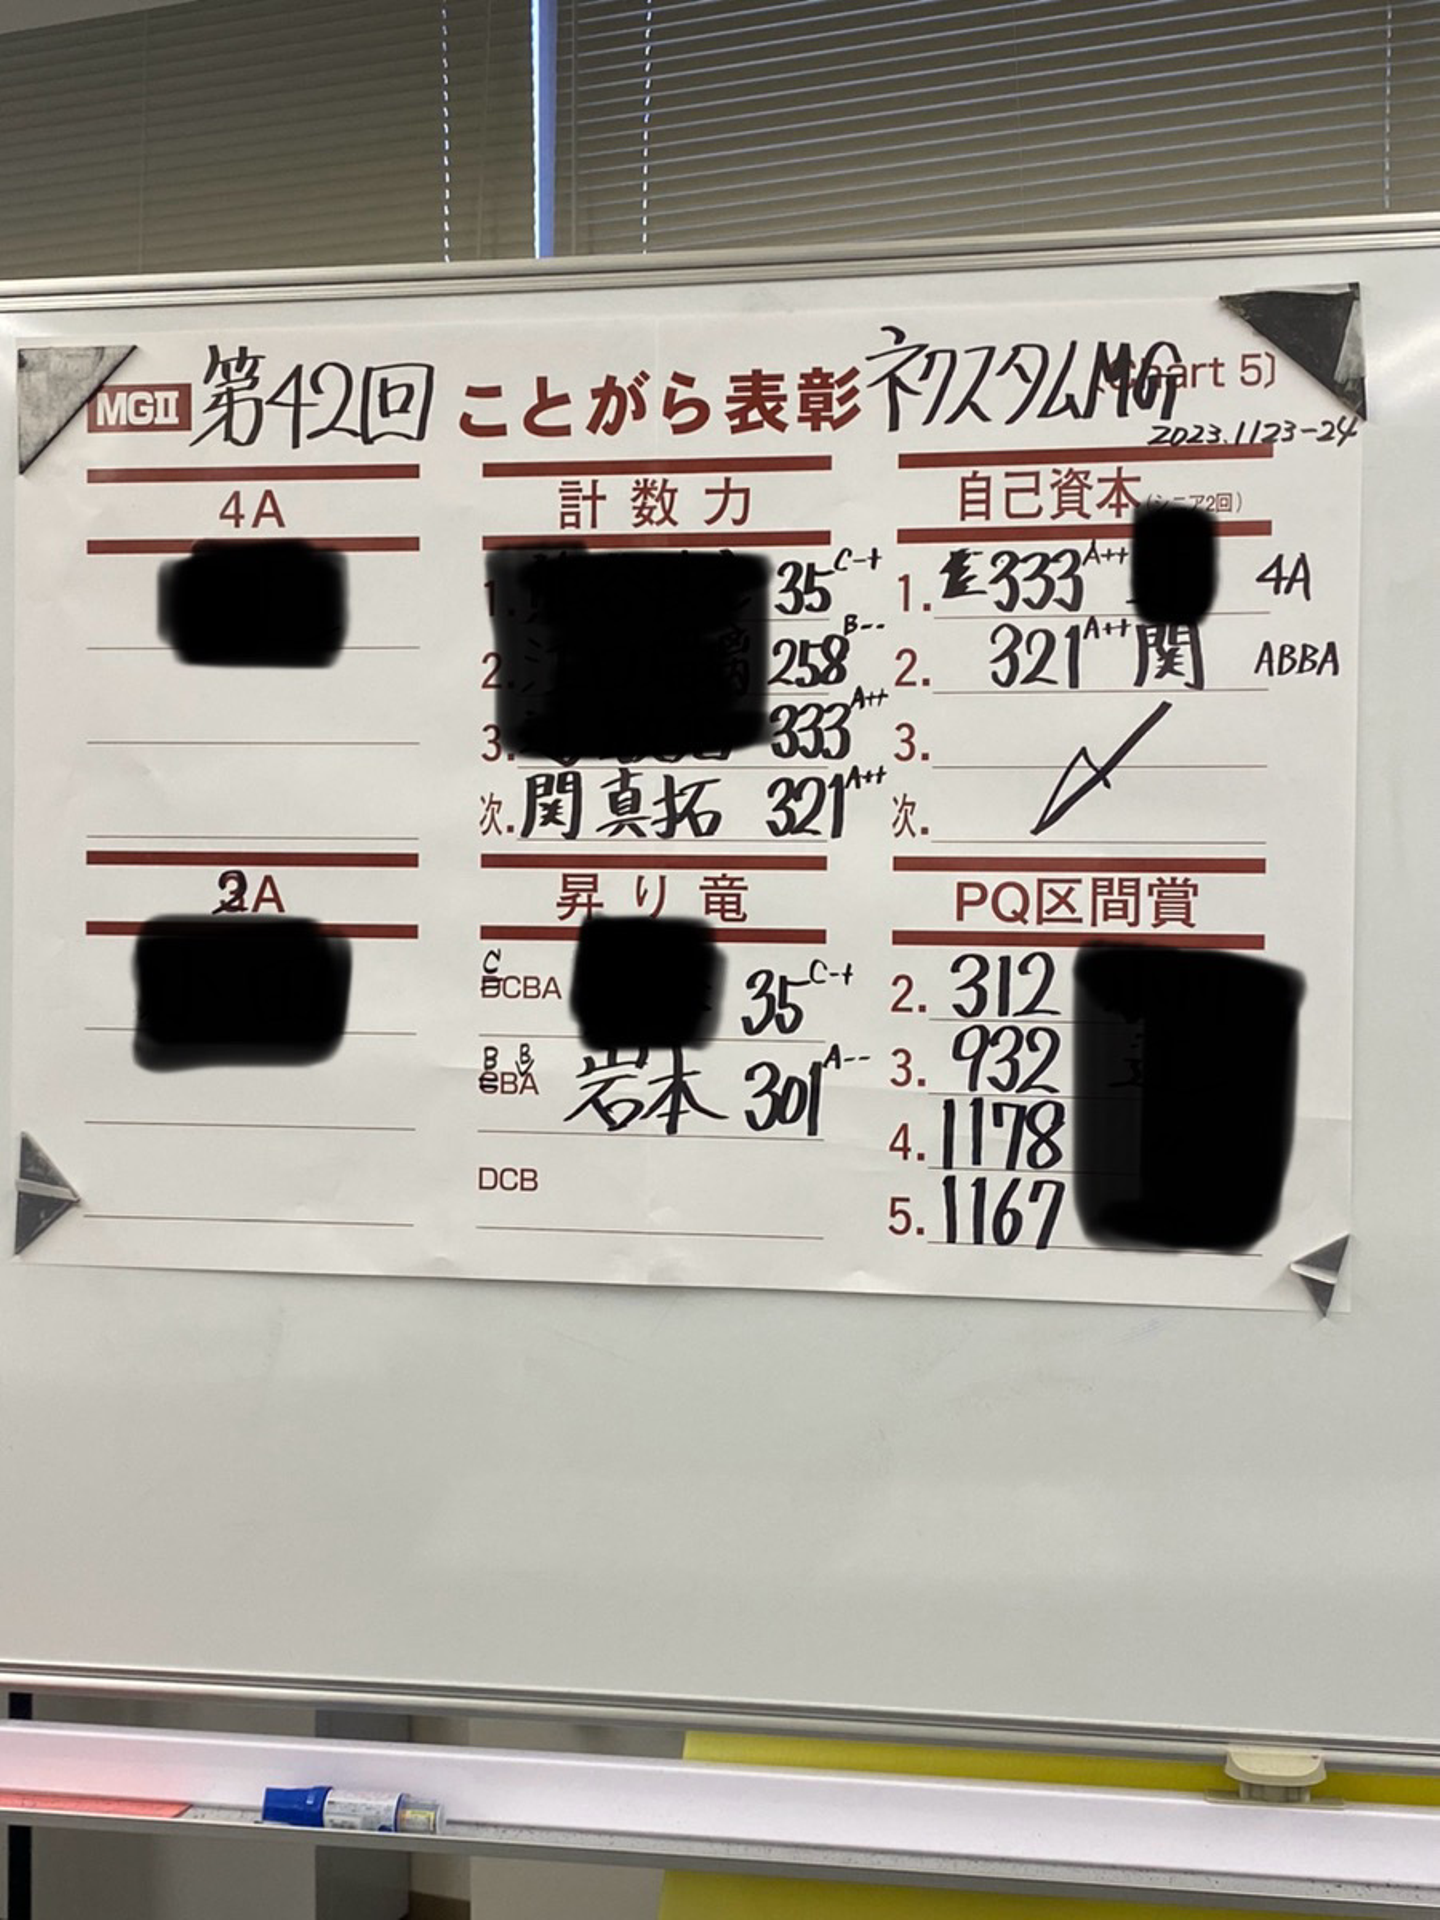 MGII 第42回 ことがら表彰 ネクスタムMG 〔Chart 5〕
2023.1123-24
4A
計数力
1. 35 C-+
2. 258 B--
3. 333 A++
次. 関 真拓 321 A++
自己資本 (シニア2回)
1. 333 A++ 4A
2. 321 A++ 関 ABBA
3.
次.
2A
昇り竜
C
DCBA 35 C-+
B B
CBA 岩本 301 A--
DCB
PQ区間賞
2. 312
3. 932
4. 1178
5. 1167